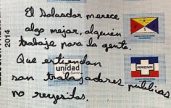 El Salvador merece
algo mejor, alguien
trabaje para la gente.
Que entiendan
son trabajadores públicos
no reyesitos.
2014